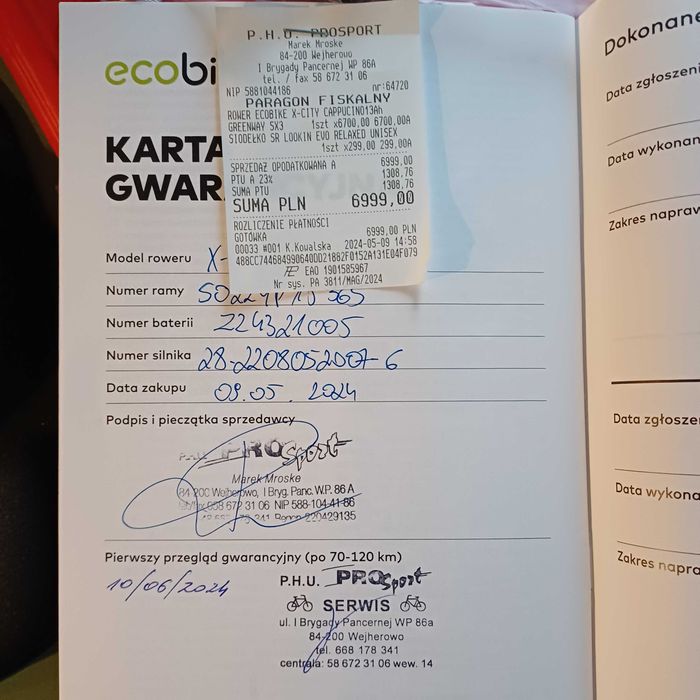 P.H.U. PROSPORT
Marek Mroske
84-200 Wejherowo
I Brygady Pancernej WP 86A
tel. / fax 58 672 31 06
NIP 5881044186 nr:64720
PARAGON FISKALNY
ROWER ECOBIKE X-CITY CAPPUCINO13Ah
GREENWAY SX3 1szt x6700,00 6700,00A
SIODEŁKO SR LOOKIN EVO RELAXED UNISEX
1szt x299,00 299,00A
SPRZEDAŻ OPODATKOWANA A 6999,00
PTU A 23% 1308,76
SUMA PTU 1308,76
SUMA PLN 6999,00
ROZLICZENIE PŁATNOŚCI
GOTÓWKA 6999,00 PLN
00033 #001 K.Kowalska 2024-05-09 14:58
488CC744684990640DD21882F0152A131E04F079
EAO 1901585967
Nr sys. PA 3811/MAG/2024
ecobi
KARTA
GWAR
Model roweru X-
Numer ramy
Numer baterii Z24321005
Numer silnika 28-2208052007-6
Data zakupu 09.05.2024
Podpis i pieczątka sprzedawcy
P.H.U. PROSport
Marek Mroske
84-200 Wejherowo, I Bryg. Panc. W.P. 86 A
tel/fax 058 672 31 06 NIP 588-104-41-86
341 Regon 220429135
Pierwszy przegląd gwarancyjny (po 70-120 km)
10/06/2024
P.H.U. PROSport
SERWIS
ul. I Brygady Pancernej WP 86a
84-200 Wejherowo
tel. 668 178 341
centrala: 58 672 31 06 wew. 14
Dokonane
Data zgłoszeni
Data wykonan
Zakres napraw
Data zgłoszen
Data wykona
Zakres napra